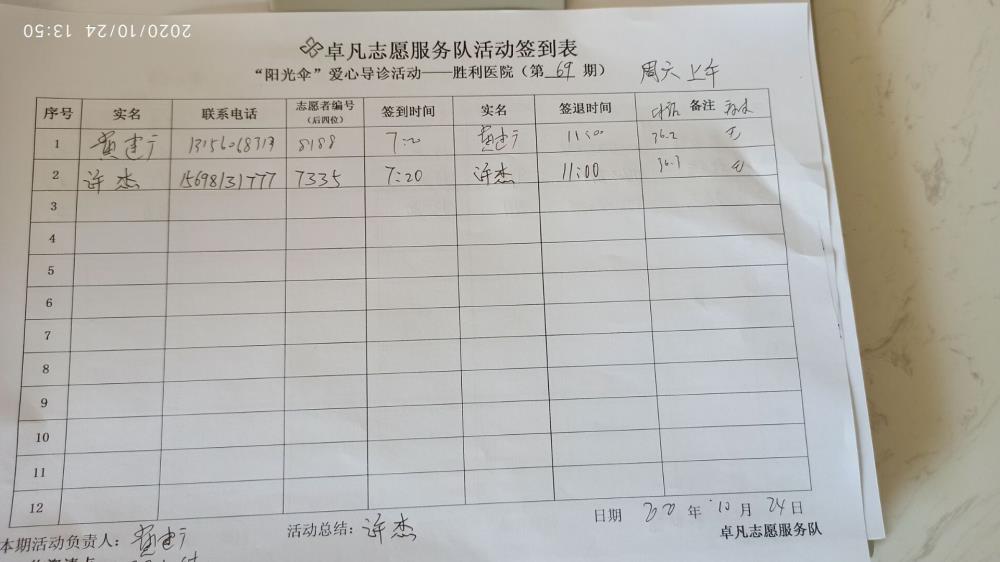 2020/10/24 13:50
卓凡志愿服务队活动签到表
“阳光伞”爱心导诊活动——胜利医院(第 69 期) 周六上午
序号 实名 联系电话 志愿者编号(后四位) 签到时间 实名 签退时间 备注
1 黄建宁 13156068713 8188 7:20 黄建宁 11:00 36.2 无
2 许杰 15698131777 7335 7:20 许杰 11:00 36.3 无
3
4
5
6
7
8
9
10
11
12
日期 2020 年 10 月 24 日
本期活动负责人: 黄建宁 活动总结: 许杰 卓凡志愿服务队